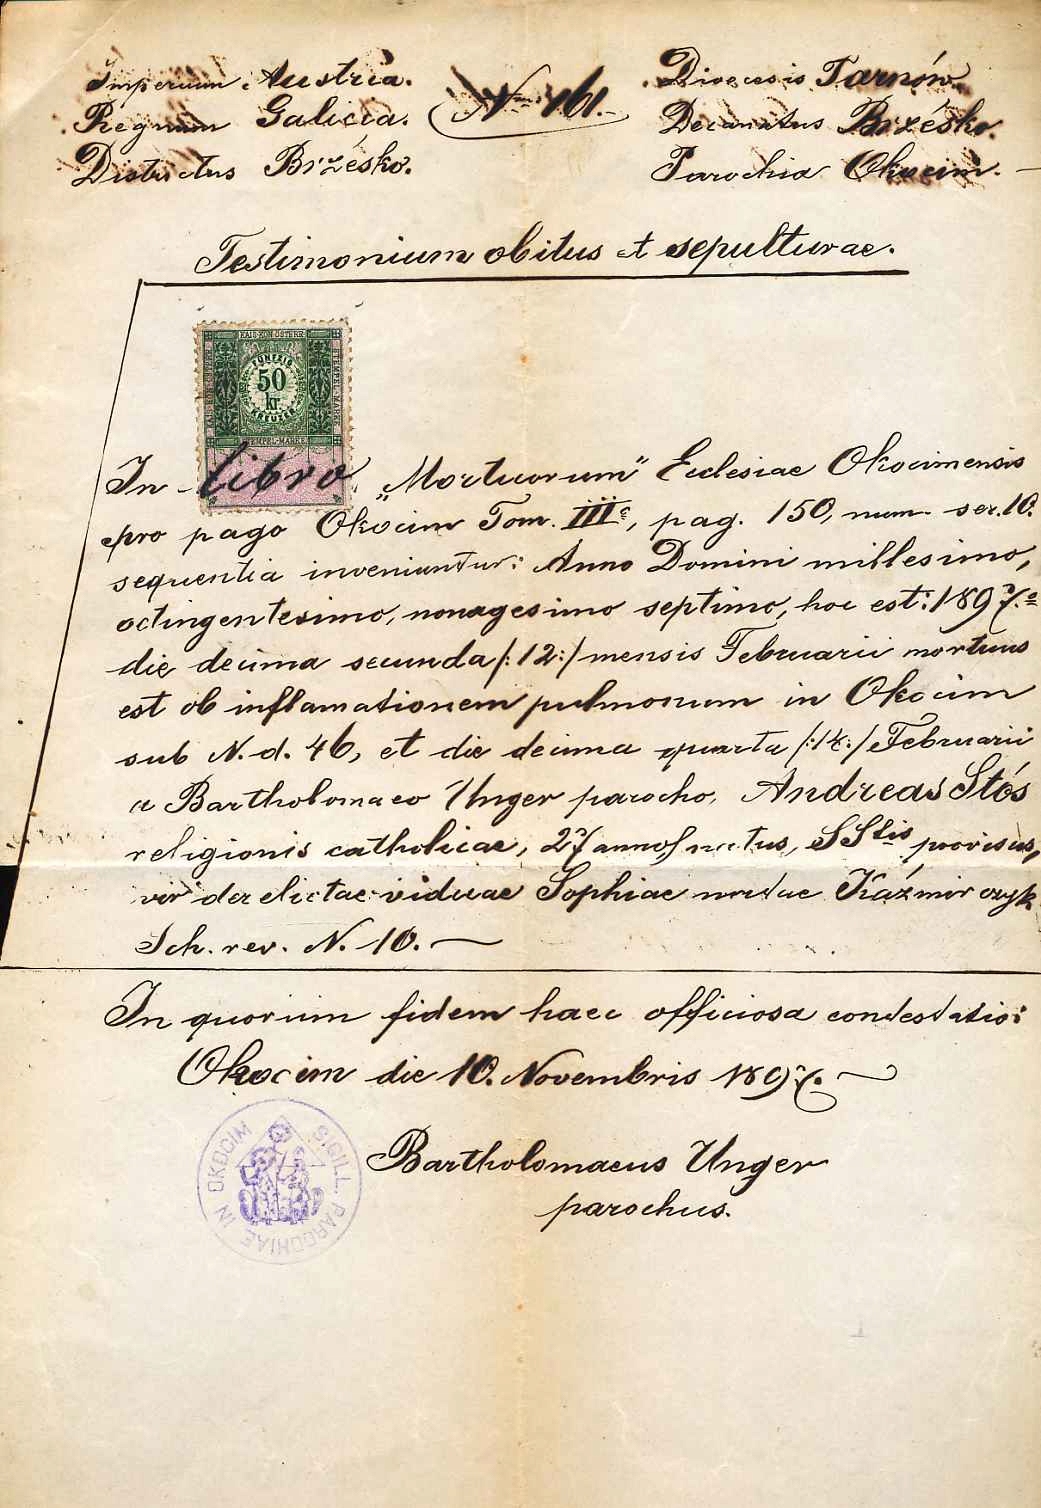 Imperium Austria.
Regnum Galicia.
Districtus Brzésko.
Nrus 161.
Dioecesis Tarnów.
Decanatus Brzésko.
Parochia Okocim.
Testimonium obitus et sepulturae.
KAIS. KÖN. ÖSTERR.
STEMPEL-MARKE
FÜNFZIG
50
kr.
KREUZER
STEMPEL-MARKE
In libro „Mortuorum" Eclesiae Okocimensis
pro pago Okocim Tom. III, pag. 150, num. ser. 10.
sequentia inveniuntur: Anno Domini millesimo,
octingentesimo, nonagesimo septimo, hoc est: 1897.
die decima secunda /:12:/ mensis Februarii mortuus
est ob inflamationem pulmonum in Okocim
sub N. d. 46, et die decima quarta /:14:/ Februarii
a Bartholomaeo Unger parocho, Andreas Stós
religionis catholicae, 27 annos natus, SStis provisus,
vir derelictae viduae Sophiae natae Kaźmirczyk
Sch. rev. N. 10.
In quorum fidem haec officiosa contestatio:
Okocim die 10. Novembris 1897.
Bartholomaeus Unger
parochus.
SIGILL. PAROCHIAE IN OKOCIM